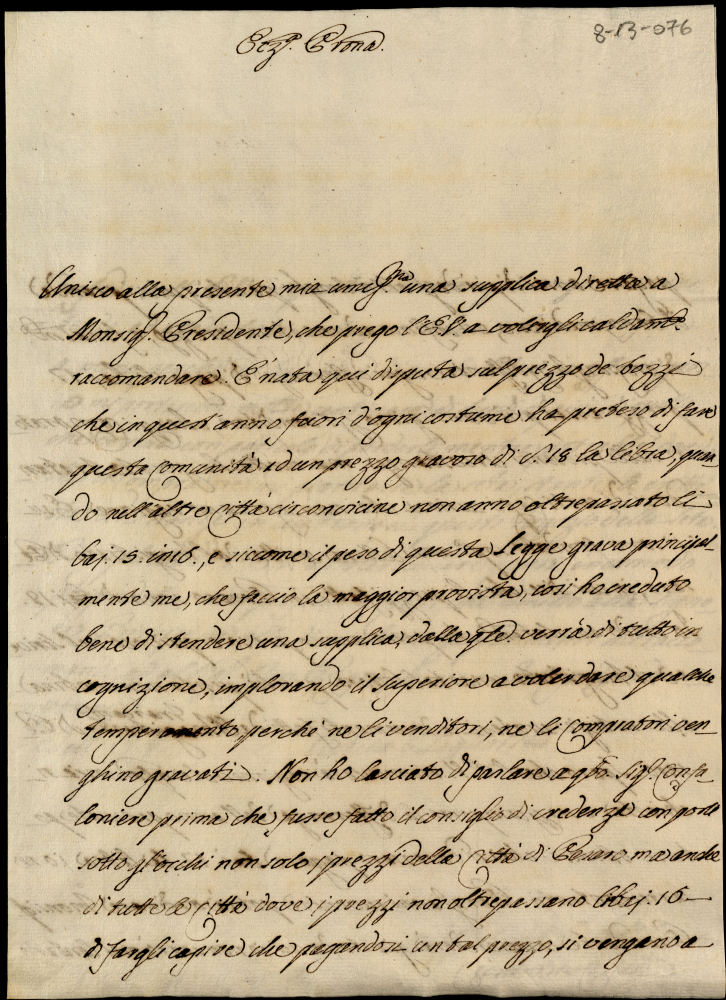 8-13-076
Eccza. Prona.
Unisco alla presente mia umiss.ma una supplica diretta a
Monsig.r Presidente, che prego l'E.V. a volergli caldam.te
raccomandare. È nata qui disputa sul prezzo de bozzi
che in quest'anno fuori d'ogni costume ha preteso di fare
questa Comunità ad un prezzo gravoso di b. 18 la libra, quan-
do nell'altre Città circonvicine non anno oltrepassato li
baj. 15. in 16., e siccome il peso di questa Legge grava principal-
mente me, che faccio la maggior provista, così ho creduto
bene di stendere una supplica, dalla q.le verrà di tutto in
cognizione, implorando il Superiore a voler dare qualche
temperamento perché ne li venditori, ne li Compratori ven-
ghino gravati. Non ho lasciato di parlare a q.to Sig.r Confa-
loniere prima che fusse fatto il consiglio di credenza con porli
sotto gl'occhi non solo i prezzi della Città di Pesaro, ma anche
di tutte le Città dove i prezzi non oltrepassano li baj. 16
di fargli capire che pagandosi un tal prezzo, si vengano a